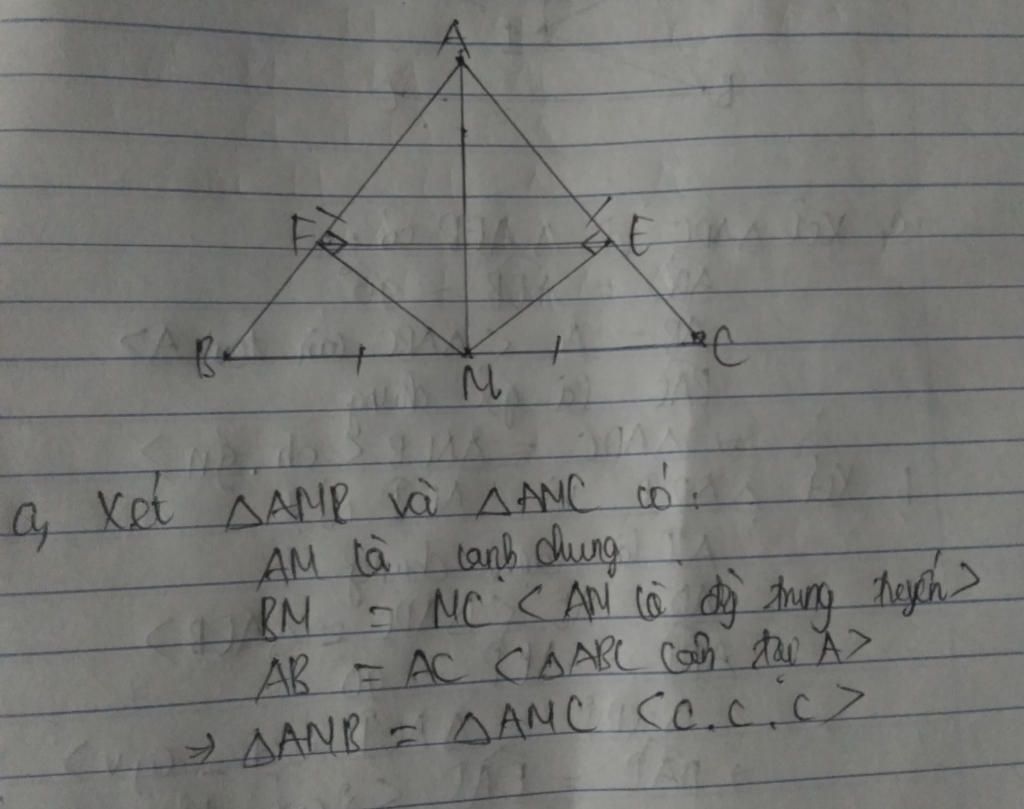 A
F
E
B
M
C
a, Xét ΔAMB và ΔAMC có:
AM là cạnh chung
BM = MC < AM là đg trung tuyến >
AB = AC < ΔABC cân tại A >
⇒ ΔAMB = ΔAMC < c.c.c >